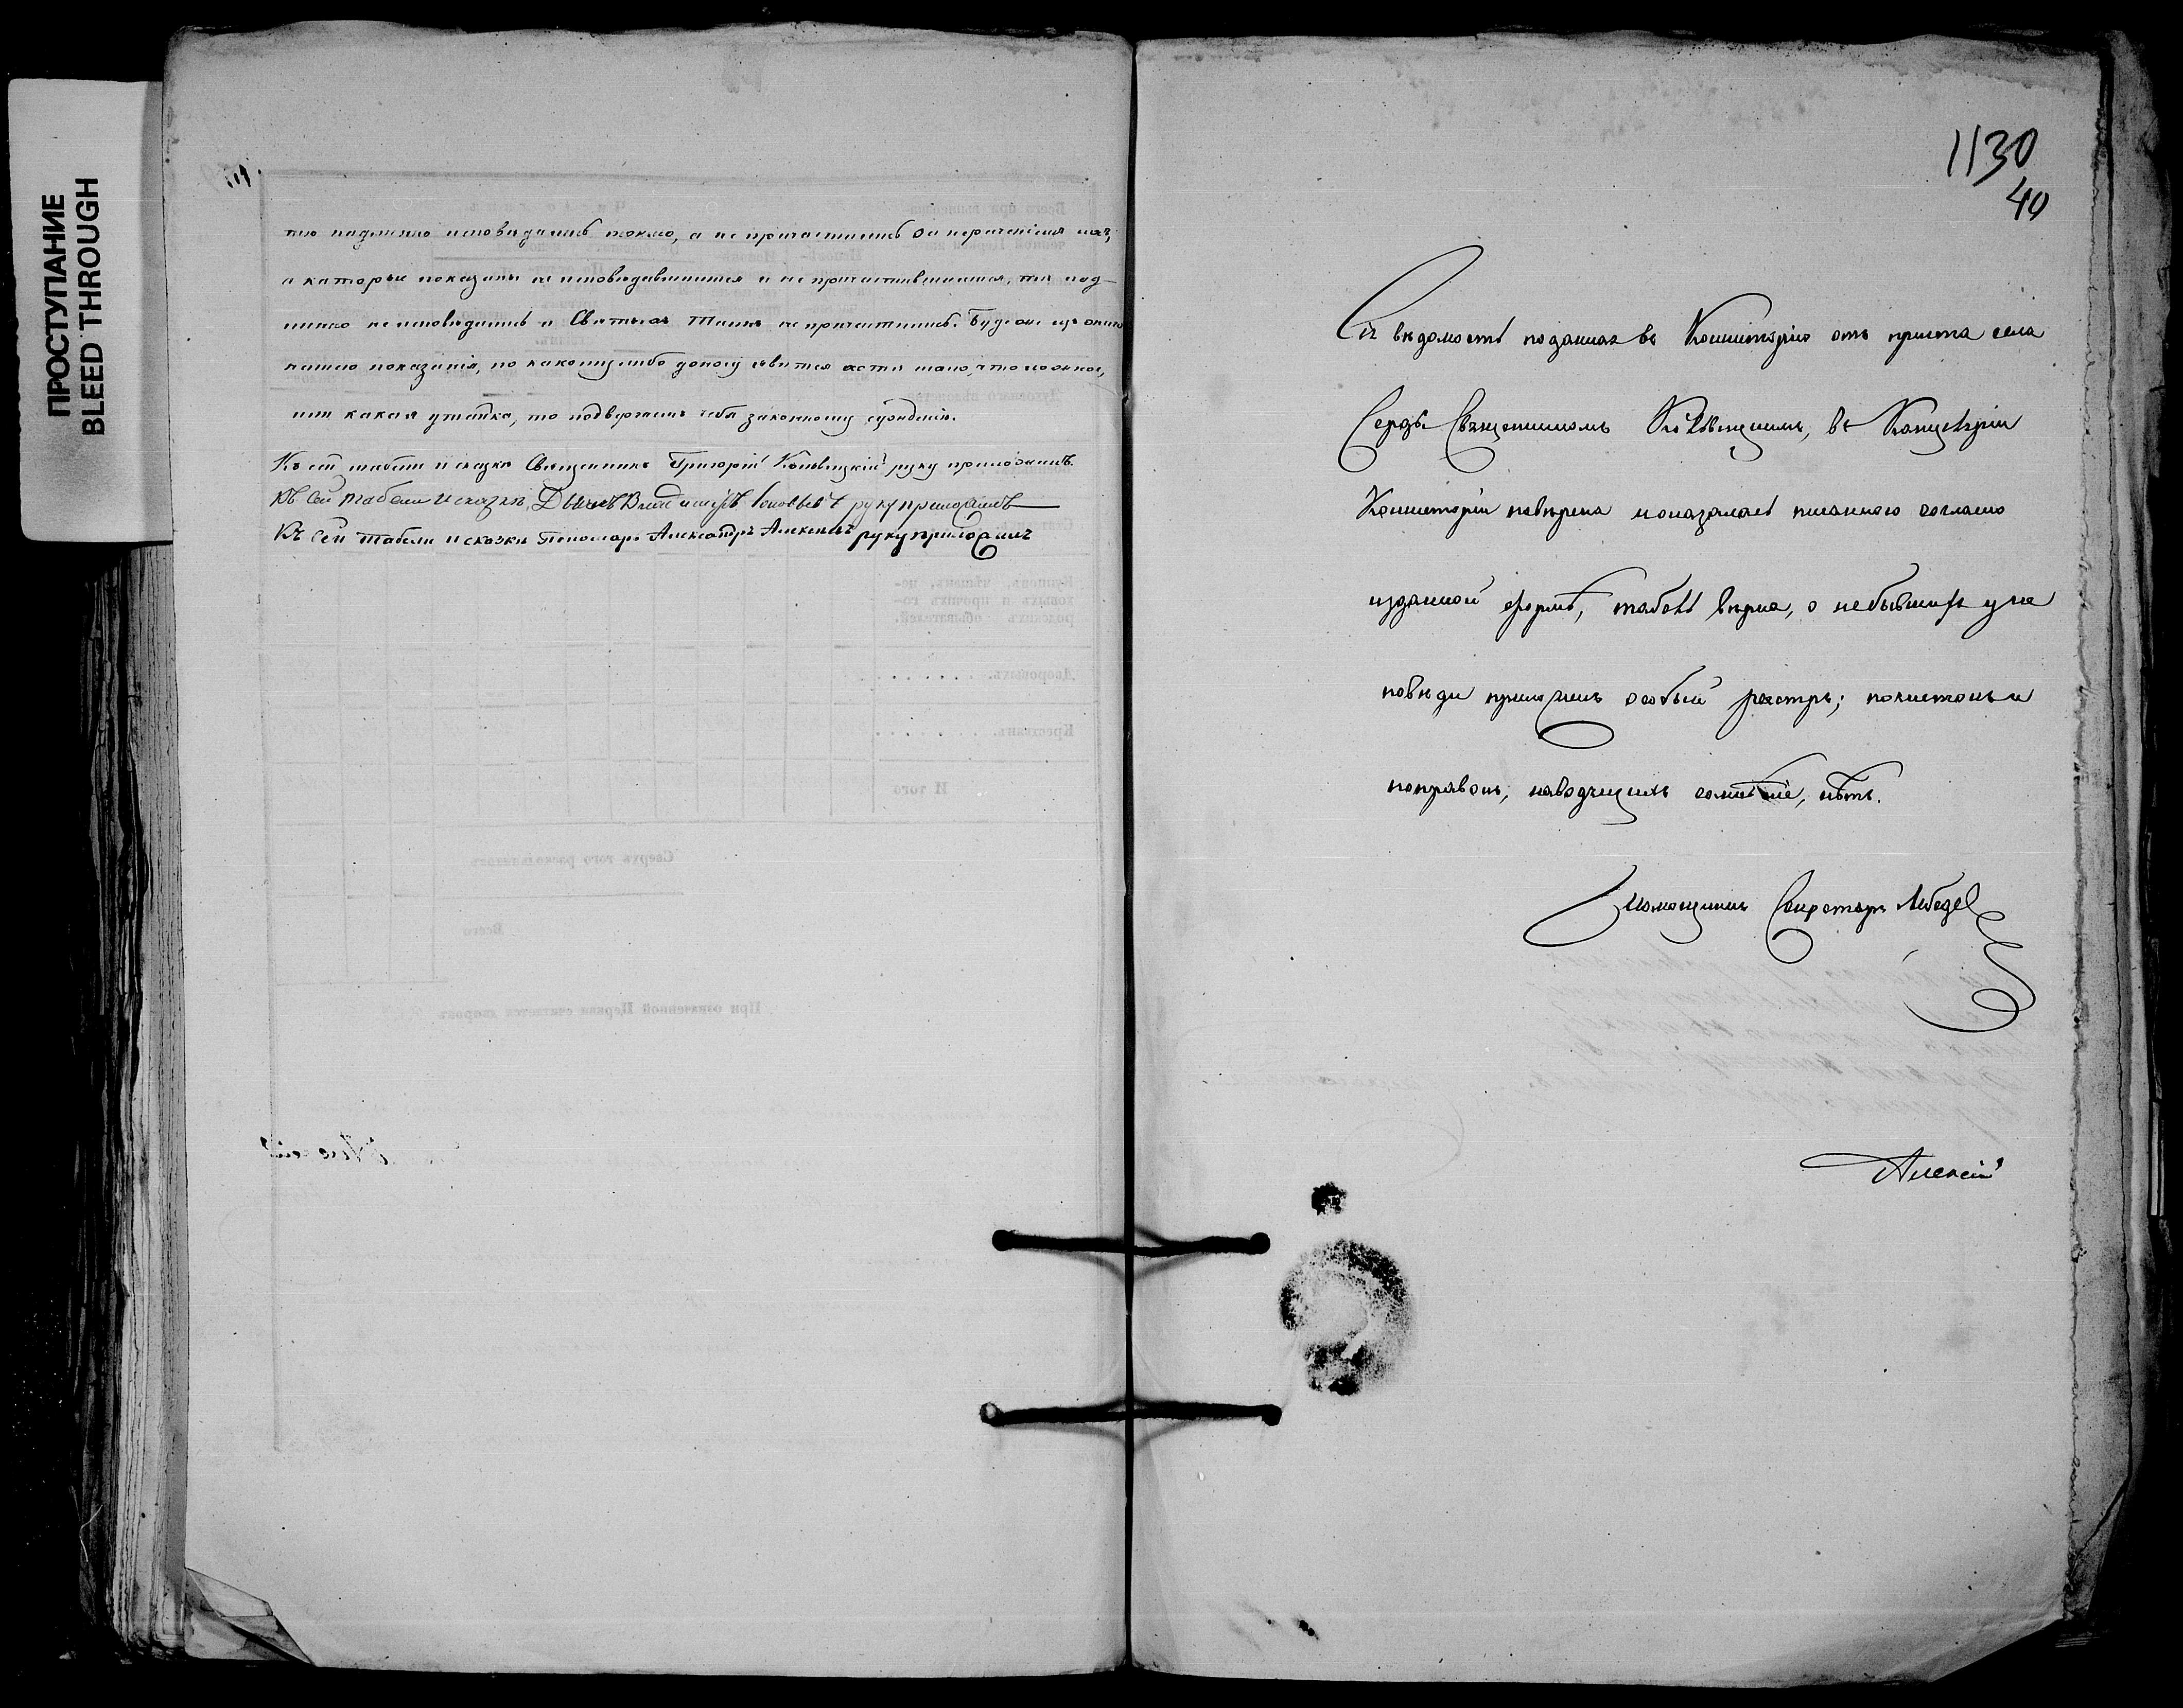 ПРОСТУПАНИЕ
BLEED THROUGH
тѣ подлинно исповѣдались токмо, а не причастились за нераченіемъ ихъ,
а которые показаны не исповѣдавшимися и не причастившимися, тѣ под-
линно не исповѣдались и Святыхъ Таинъ не причастились. Буде же изъ онаго
нашего показанія, по какому либо доносу явится хотя мало, что ложное,
или какая утайка, то подвергаемъ себя законному сужденію.
Къ сей табели и сказкѣ Священникъ Григорій руку приложилъ.
Къ сей табели и сказкѣ Дьячекъ руку приложилъ
Къ сей табели и сказкѣ Пономарь Александръ Алексѣевъ руку приложилъ
1130
40
Сія вѣдомость поданная въ Консисторію отъ причта села
Священникомъ въ Канцеляріи
Консисторіи повѣрена и оказалась писанною согласно
изданной формѣ, табель вѣрна, о небывшихъ у ис
повѣди приложенъ особый реестръ; почистокъ и
поправокъ, наводящихъ сомнѣніе, нѣтъ.
Помощникъ Секретаря Лебедев
Алексій